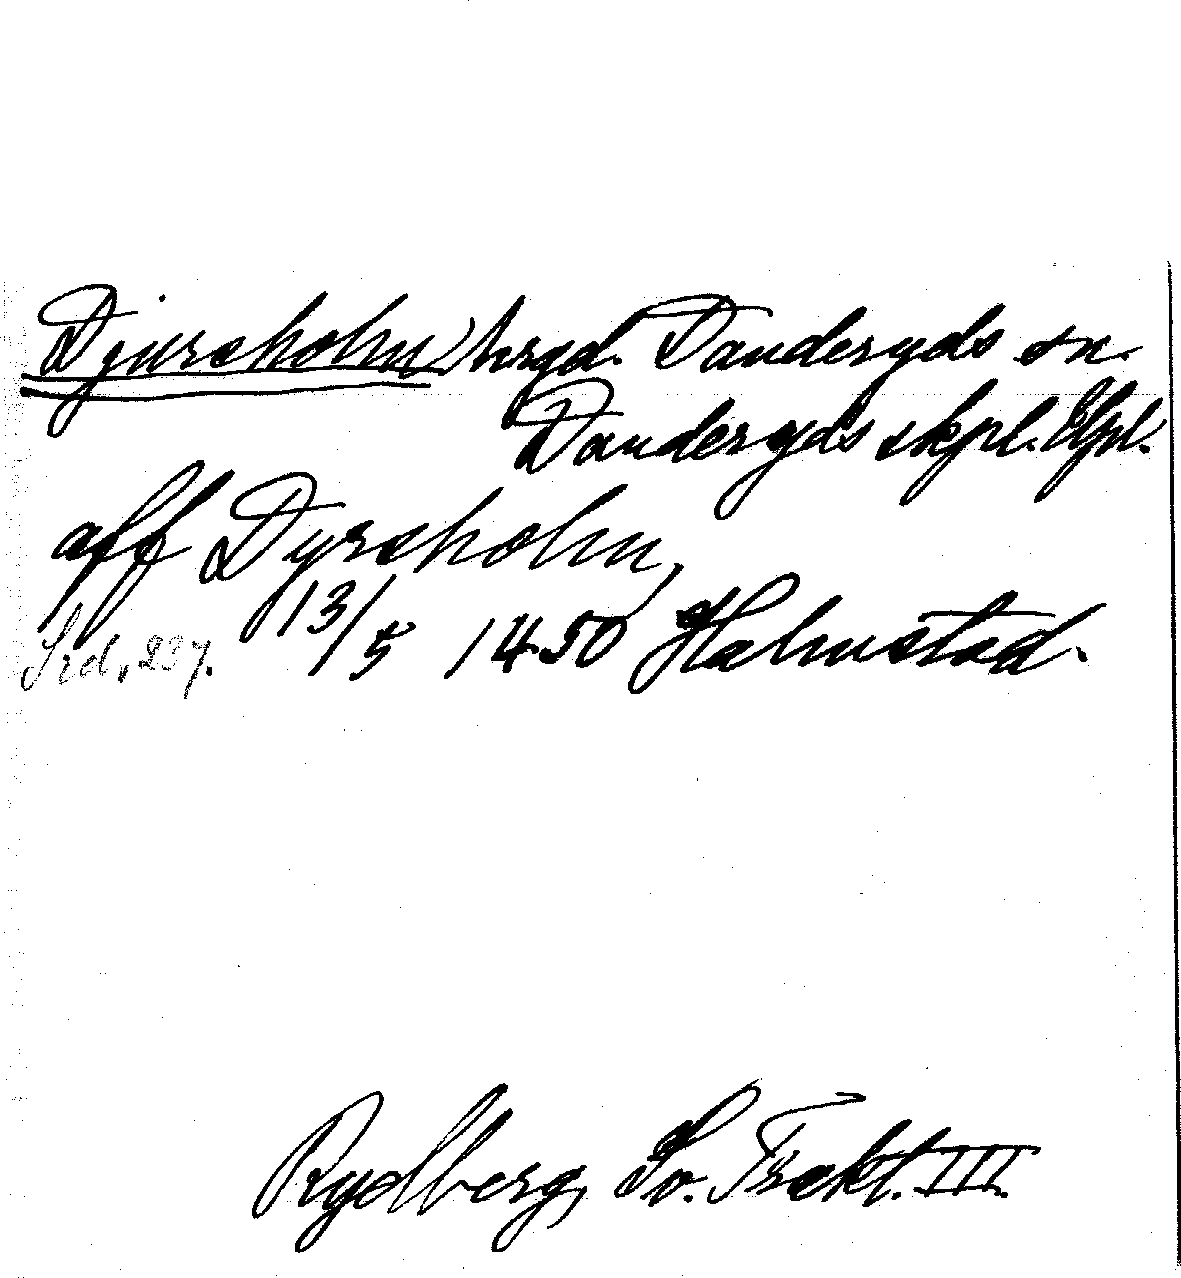 Djursholm, hrgd. Danderyds sn.
Danderyds skpl. Upl.
aff Dyrsholm,
13/5 1450 Halmstad.
Srd, 237.
Rydberg, Sv. Trakt. III.